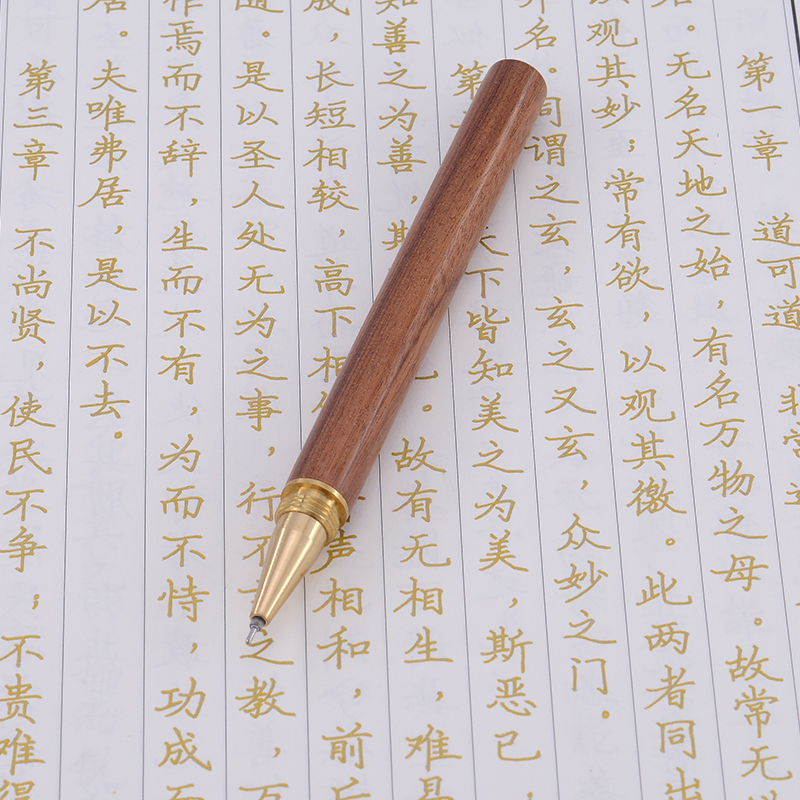 第一章 道可道 非常
名。无名天地之始，有名万物之母。故常无
观其妙；常有欲，以观其徼。此两者同出
名。同谓之玄，玄之又玄，众妙之门。
第 天下皆知美之为美，斯恶已；
知善之为善，斯 。故有无相生，难易
成，长短相较，高下相 声相和，前后
随。是以圣人处无为之事，行不 之教，万
作焉而不辞，生而不有，为而不恃，功成而
居。夫唯弗居，是以不去。
第三章 不尚贤，使民不争；不贵唯得